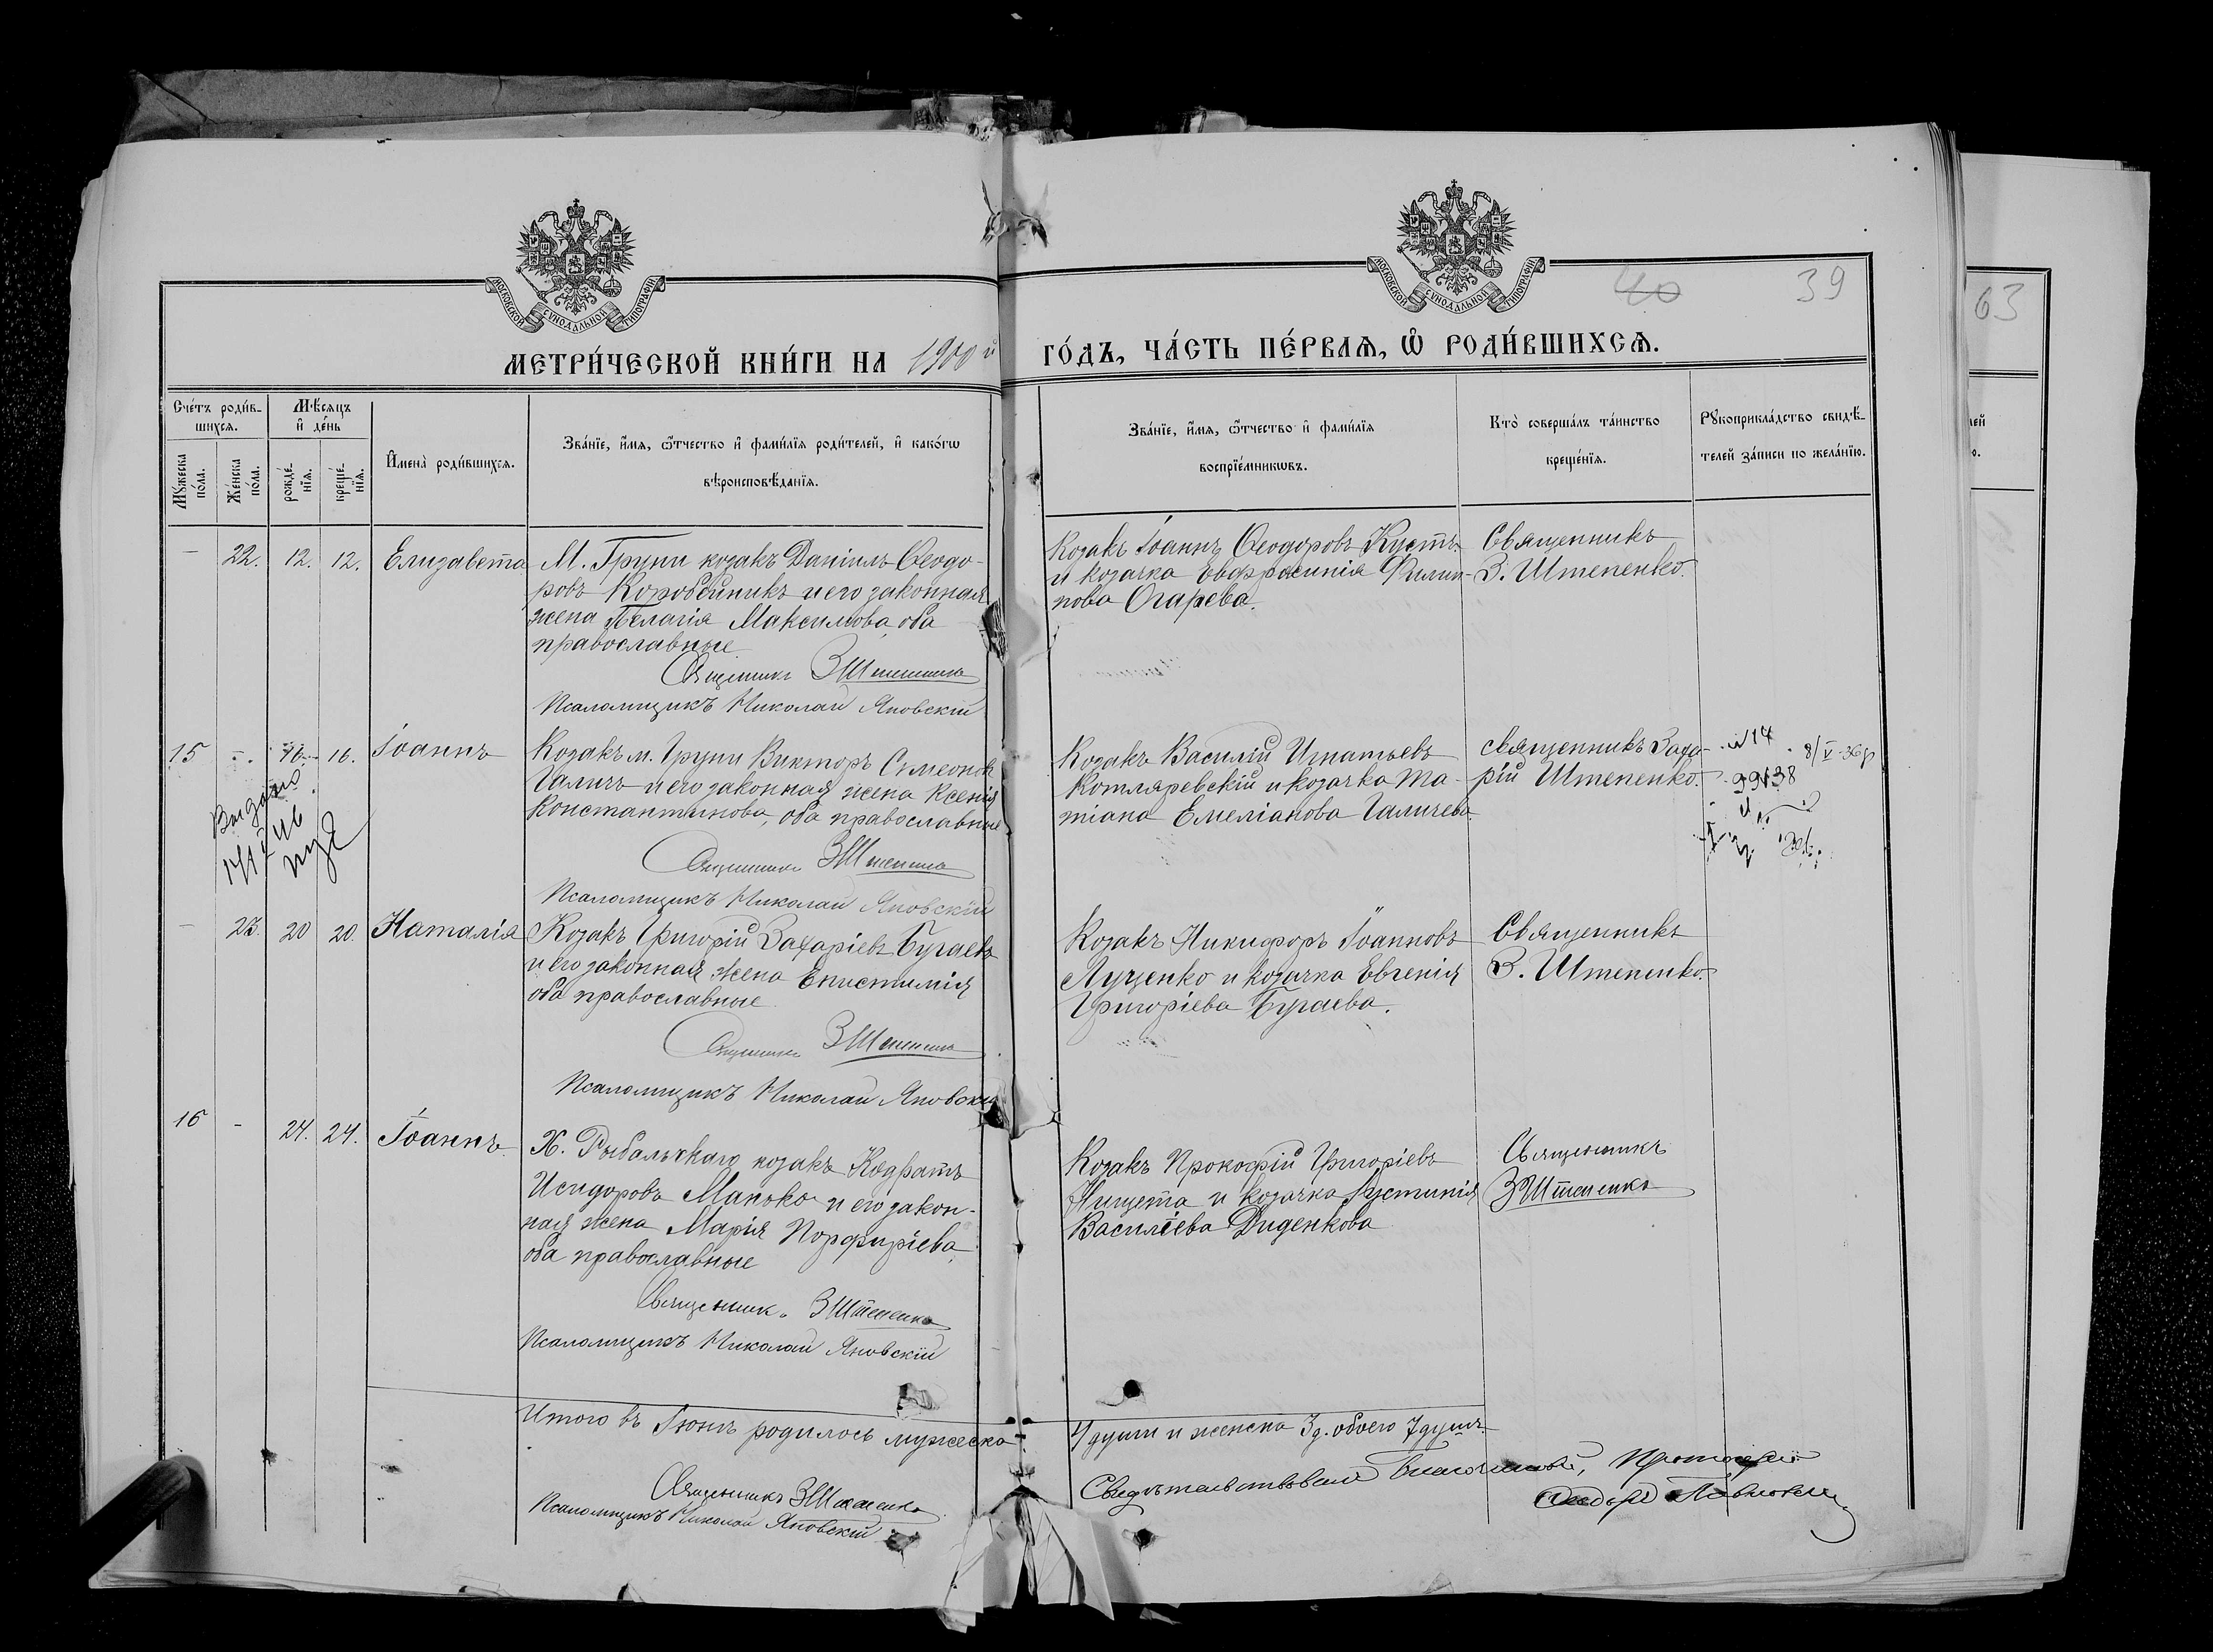 МОСКОВСКОЙ СѴНОДАЛЬНОЙ ТИПОГРАФІИ
МОСКОВСКОЙ СѴНОДАЛЬНОЙ ТИПОГРАФІИ
40 39
63
МЕТРИ́ЧЕСКОЙ КНИ́ГИ НА 1900 й ГО́ДЪ, ЧА́СТЬ ПЕ́РВАѦ, Ѡ҆ РОДИ́ВШИХСѦ.
Сче́тъ роди́в-
шихсѧ.
Мѣ́сѧцъ
и҆ де́нь
Мꙋ́жеска
по́ла.
Же́нска
по́ла.
рожде́-
нїѧ.
креще́-
нїѧ.
И҆мена̀ роди́вшихсѧ.
Зва́нїе, и҆́мѧ, ѻ҆́тчество и҆ фами́лїѧ роди́телей, и҆ како́гѡ
вѣроисповѣ́данїѧ.
Зва́нїе, и҆́мѧ, ѻ҆́тчество и҆ фами́лїѧ
воспрїе́мникѡвъ.
Кто̀ соверша́лъ та́инство
креще́нїѧ.
Рꙋкоприкла́дство свидѣ́-
телей за́писи по жела́нїю.
— 22. 12. 12. Елизавета
М. Груни козакъ Даніилъ Ѳеодо-
ровъ Коробейникъ и его законная
жена Пелагія Максимова, оба
православные
Священникъ З Штепенко
Псаломщикъ Николай Яновскій
Козакъ Іоаннъ Ѳеодоровъ Кустъ
и козачка Евфросинія Филип-
пова Огарева.
Священникъ
З. Штепенко.
15 - 16 16. Іоаннъ
Козакъ м. Груни Викторъ Симеоновъ
Галичъ и его законная жена Ксенія
Константинова, оба православные
Священникъ З Штепенко
Псаломщикъ Николай Яновскій
Козакъ Василій Игнатьевъ
Котляревскій и козачка Та-
тіана Емеліанова Галичева
священникъ Заха-
рій Штепенко.
Выдано
- 23. 20 20. Наталія
Козакъ Григорій Захаріевъ Бугаевъ
и его законная жена Епистимія
оба православные
Священникъ З Штепенко
Псаломщикъ Николай Яновскій
Козакъ Никифоръ Іоанновъ
Луценко и козачка Евгенія
Григоріева Бугаева.
Священникъ
З. Штепенко.
16 - 24. 24. Іоаннъ.
Х. Рыбальскаго козакъ Кодратъ
Исидоровъ Манько и его закон-
ная жена Марія Порфиріева,
оба православные
Священникъ З Штепенко
Псаломщикъ Николай Яновскій
Козакъ Прокофій Григоріевъ
Нищета и козачка Іустинія
Василіева Диденкова
Священникъ
З Штепенко
Итого въ Іюнѣ родилось мужеска 4 души и женска 3 д. обоего 7 душъ.
Священникъ З Штепенко
Псаломщикъ Николай Яновскій
Свидѣтельствовалъ Благочинный, Протоіерей